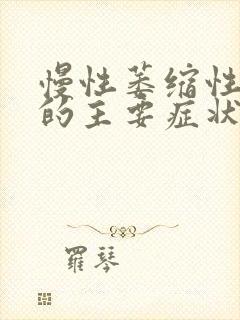 慢性萎缩性
的主要症状
羅琴